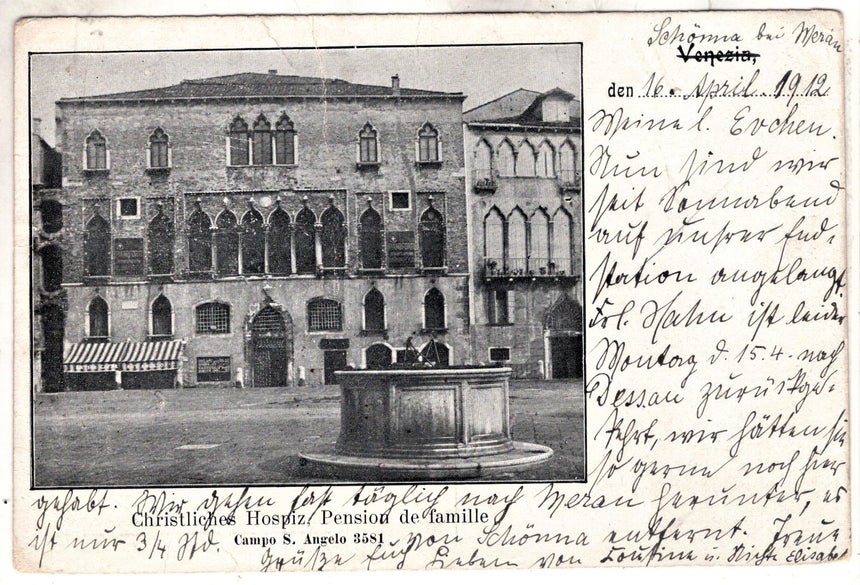 Schönna bei Meran
Venezia,
den 16. April 1912
Meine l. Evchen.
Nun sind wir
seit Sonnabend
auf unsrer End-
station angelangt.
Frl. Hahn ist leider
Montag d. 15.4. nach
Dessau zurückge-
kehrt, wir hätten sie
so gerne noch hier
gehabt. Wir gehen fast täglich nach Meran herunter, es
Christliches Hospiz. Pension de famille
ist nur 3/4 Std. von Schönna entfernt. Treue
Campo S. Angelo 3581
Grüße Euch Lieben von Cousine u. Nichte Elisabet